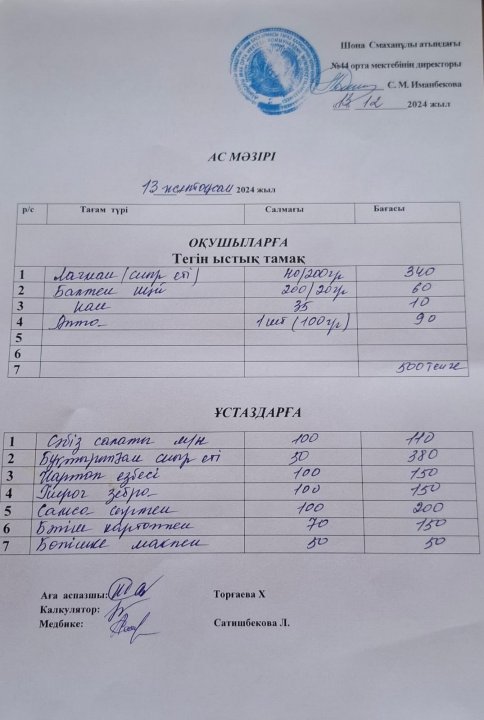 Шона Смаханұлы атындағы
№44 орта мектебінің директоры
С. М. Иманбекова
13 12 2024 жыл
АС МӘЗІРІ
13 желтоқсан 2024 жыл
р/с Тағам түрі Салмағы Бағасы
ОҚУШЫЛАРҒА
Тегін ыстық тамақ
1 Лагман (сиыр еті) 40/200гр 340
2 Балмен шәй 200/20гр 60
3 нан 35 10
4 Алма 1шт (100гр) 90
5
6
7 500 тенге
ҰСТАЗДАРҒА
1 Сәбіз салаты 100 110
2 Бұқтырылған сиыр еті 50 380
3 Картоп езбесі 100 150
4 Пирог зебра 100 150
5 Самса етпен 100 200
6 Бәліш картоппен 70 150
7 Бөлішке макпен 50 50
Аға аспазшы: Торғаева Х
Калкулятор:
Медбике: Сатишбекова Л.